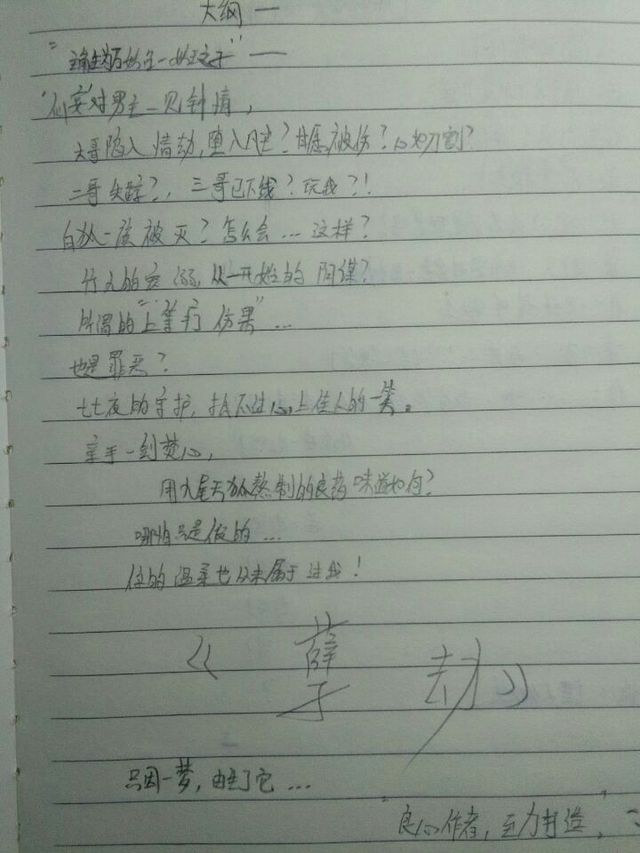 大纲一
对男主一见钟情，
大哥陷入情劫，堕入凡尘？甘愿被伤？心如刀割？
二哥失踪？，三哥已下线？玩我？！
白狐一族被灭？怎么会…这样？
从一开始的阴谋？
所谓的"上等疗伤果"…
也是罪恶？
七七夜的守护，抵不过心上佳人的一笑。
亲手一剑焚心，
用九尾天狐熬制的良药味道如何？
哪怕只是假的…
你的温柔也从未属于过我！
《孽劫》
只因一梦，由生了它…
"良心作者，至力打造"，